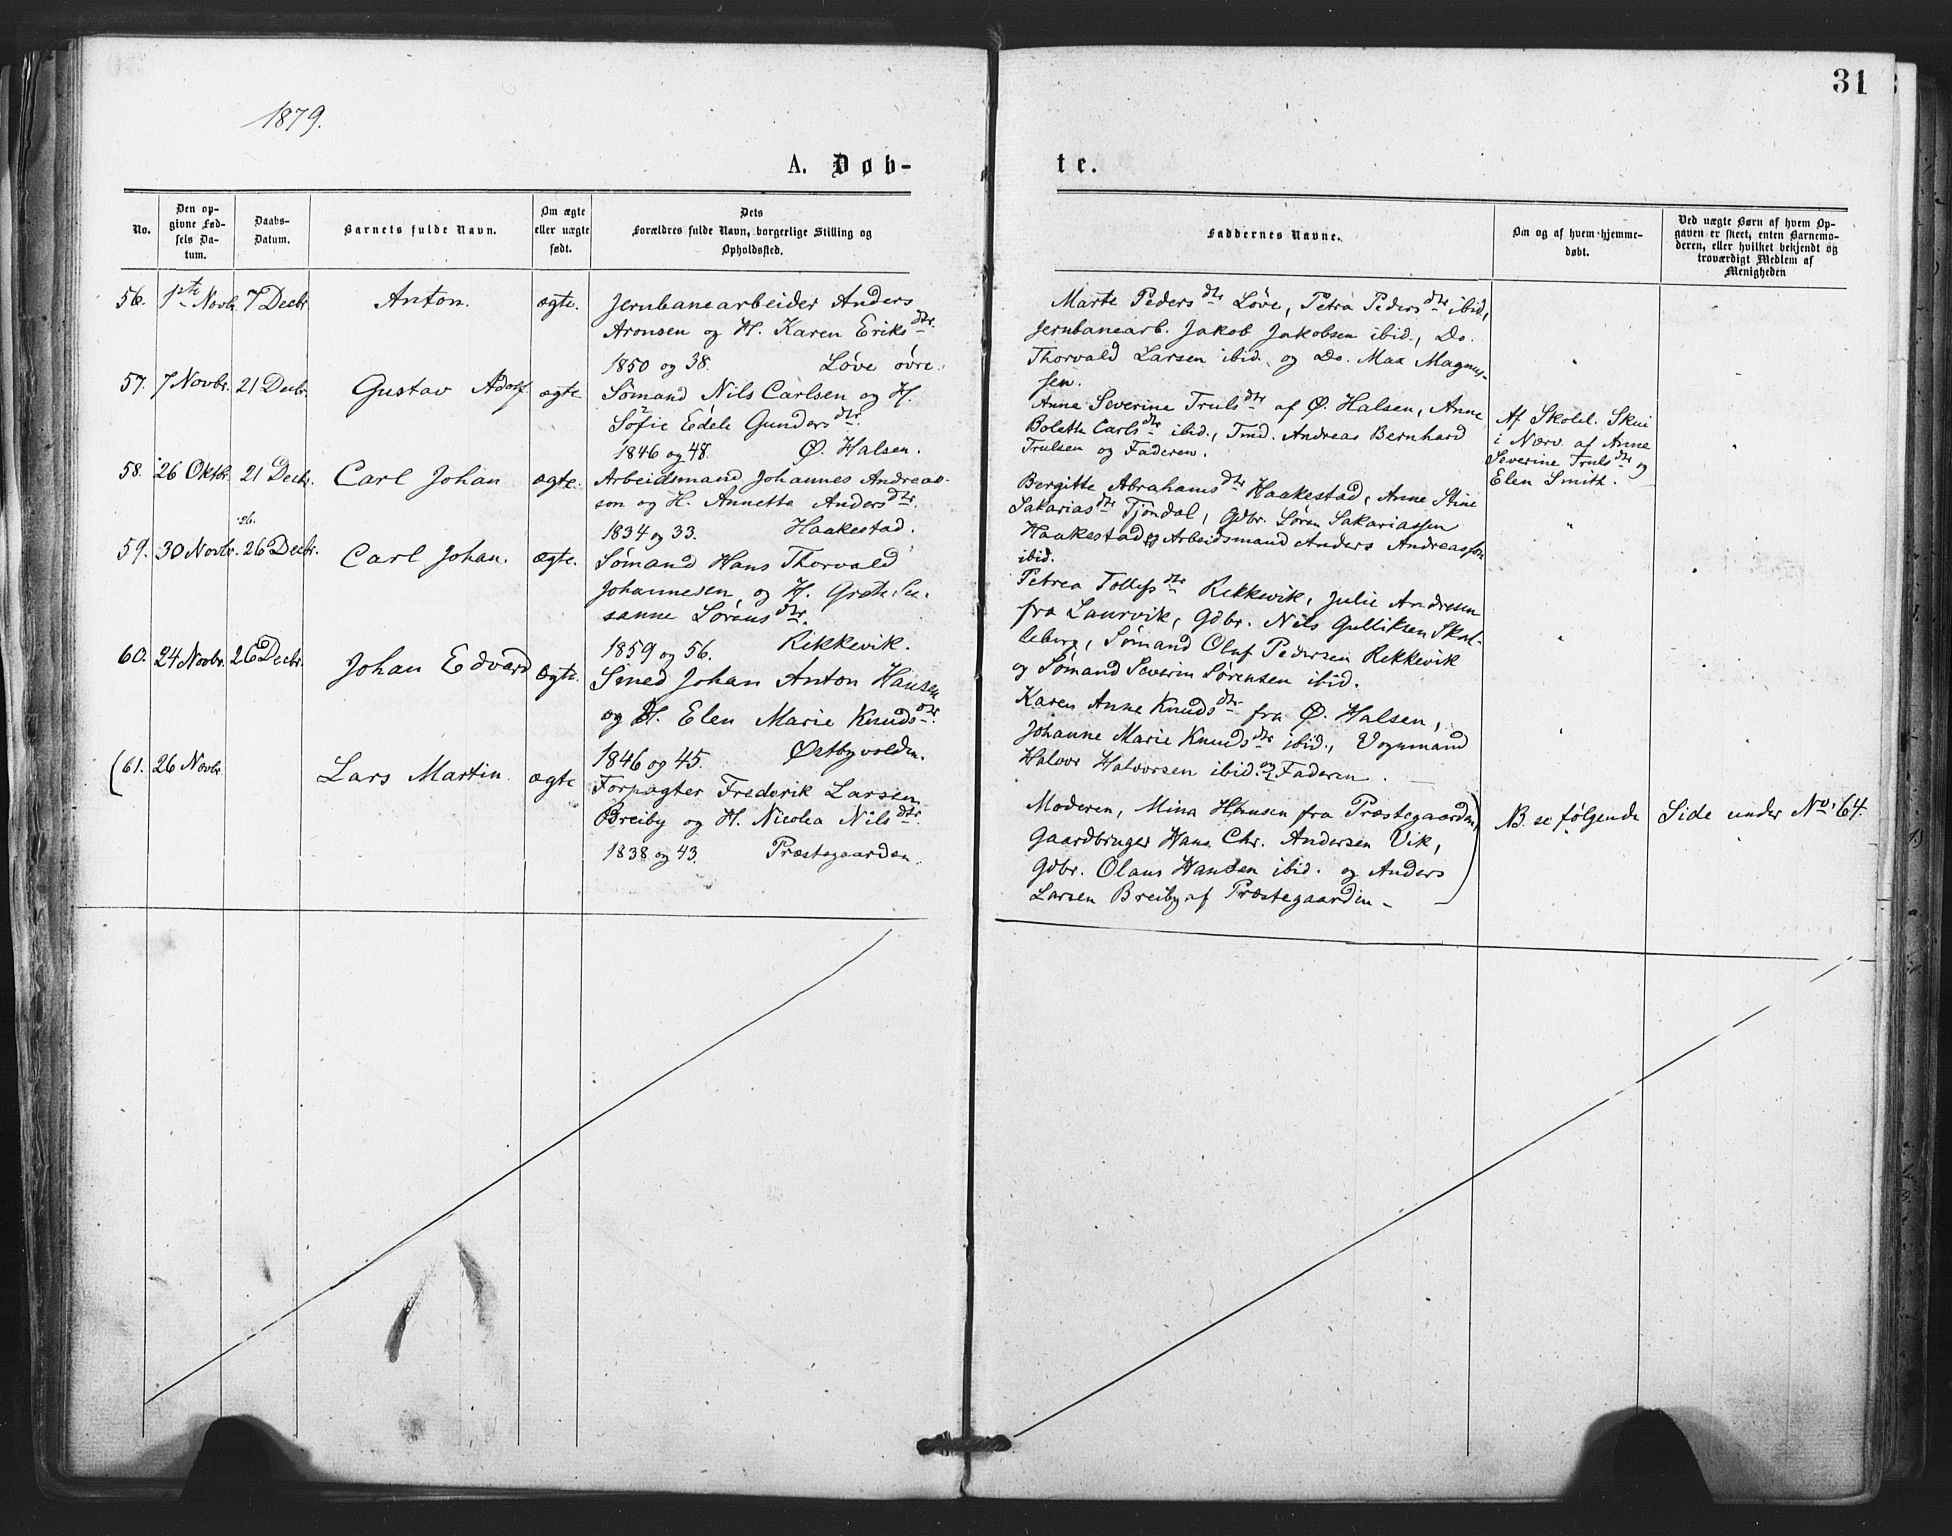 31
1879.
A. Døb-
te.
No.
Den op-
givne Fød-
sels Da-
tum.
Daabs-
Datum.
Barnets fulde Navn.
Om ægte
eller uægte
født.
Dets
Forældres fulde Navn, borgerlige Stilling og
Opholdssted.
Faddernes Navne.
Om og af hvem hjemme-
døbt.
Ved uægte Børn af hvem Op-
gaven er skeet, enten Barnemo-
deren, eller hvilket bekjendt og
troværdigt Medlem af
Menigheden
56. 1ste Novb. 7 Decbr. Anton. ægte.
Jernbanearbeider Anders
Aronsen og H. Karen Eriksdtr.
1850 og 38. Løve øvre.
Marte Pedersdtr Løve, Petra Pedersdtr ibid,
Jernbanearb. Jakob Jakobsen ibid., Do.
Thorvald Larsen ibid. og Do. Max Magnus-
sen.
57. 7 Novbr. 21 Decbr. Gustav Adolf ægte.
Sømand Nils Carlsen og H.
Sofie Edele Gundersdtr.
1846 og 48. Ø. Halsen.
Anne Severine Trulsdtr af Ø. Halsen, Anne
Bolette Carlsdtr ibid., Tmd. Andreas Bernhard
Trulsen og Faderen.
Af Skolel. Skui
i Nærv. af Anne
Severine Trulsdtr og
Elen Smith.
58. 26 Oktbr. 21 Decbr. Carl Johan ægte.
Arbeidsmand Johannes Andreas-
son og H. Annette Andersdtr.
1834 og 33. Haakestad.
Bergitte Abrahamsdtr Haakestad, Anne Stine
Sakariasdtr Tjøndal, Gdbr. Søren Sakariassen
Haakestad og Arbeidsmand Anders Andreassen
ibid.
26.
59. 30 Novbr. 26 Decbr. Carl Johan. ægte.
Sømand Hans Thorvald
Johannesen og H. Grethe Su-
sanne Sørensdtr.
1859 og 56. Rekkevik.
Petrea Tollefsdtr Rekkevik, Julie Andresen
fra Laurvik, Gdbr. Nils Gulliksen Skal-
leberg, Sømand Oluf Pedersen Rekkevik
og Sømand Severin Sørensen ibid.
60. 24 Novbr. 26 Decbr. Johan Edvard ægte.
Smed Johan Anton Hansen
og H. Elen Marie Knudsdtr.
1846 og 45. Østbyvolden.
Karen Anne Knudsdtr fra Ø. Halsen,
Johanne Marie Knudsdtr ibid., Vognmand
Halvor Halvorsen ibid. og Faderen.
(61. 26 Novbr Lars Martin. ægte
Forpagter Frederik Larsen
Breiby og H. Nicolea Nilsdtr.
1838 og 43. Præstegaarden.
Moderen, Mina Hansen fra Præstegaarden,
Gaardbruger Hans Chr. Andersen Vik,
Gdbr. Olaus Hansen ibid. og Anders
Larsen Breiby af Præstegaarden -)
B. se følgende Side under No. 64.